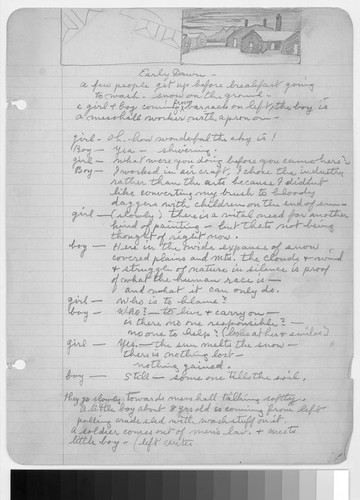 Early Dawn -
a few people get up before breakfast going
to wash - snow on the ground -
a girl & boy coming from barrack on left, the boy is
a messhall worker with apron on -
girl - Oh - how wonderful the sky is!
Boy - Yea - shivering.
girl - What were you doing before you came here?
Boy - I worked in air craft, I chose the industry
rather than the arts because I didn't
like converting my brush to bloody
daggers with children on the end of
girl - (slowly) there is a vital need for another
kind of painting - but thats not being
thought of right now.
boy - Here in the wide expanse of snow
covered plains and mts. the clouds & wind
& struggle of nature in silence is proof
of what the human race is -
and what it can only do.
girl - Who is to blame?
boy - Who? - to live & carry on -
is there no one responsible? -
no one to help? (looks at her & smiles)
girl - Yes - the sun melts the snow -
there is nothing lost -
nothing gained.
boy - Still - some one tills the soil.
They go slowly towards mess hall talking softly.
A little boy about 8 yrs old is coming from left
pulling crude sled with wash stuff on it.
A soldier comes out of men's lav. & meets
little boy - (left center